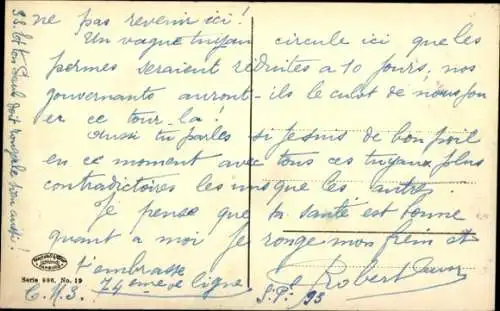 ne pas revenir ici !
Un vague tuyau circule ici que les
permes seraient réduites à 10 jours, nos
gouvernants auront-ils le culot de nous jou
er ce tour-là !
Aussi tu parles si je suis de bon poil
en ce moment avec tous ces tuyaux plus
contradictoires les uns que les autres.
Je pense que ta santé est bonne
quant à moi je ronge mon frein et
t'embrasse Robert
74ème de ligne
C.M.3. S.P. 93
Serie 696, No. 19
P.S. Et ton Paul doit rouspéter lui aussi !